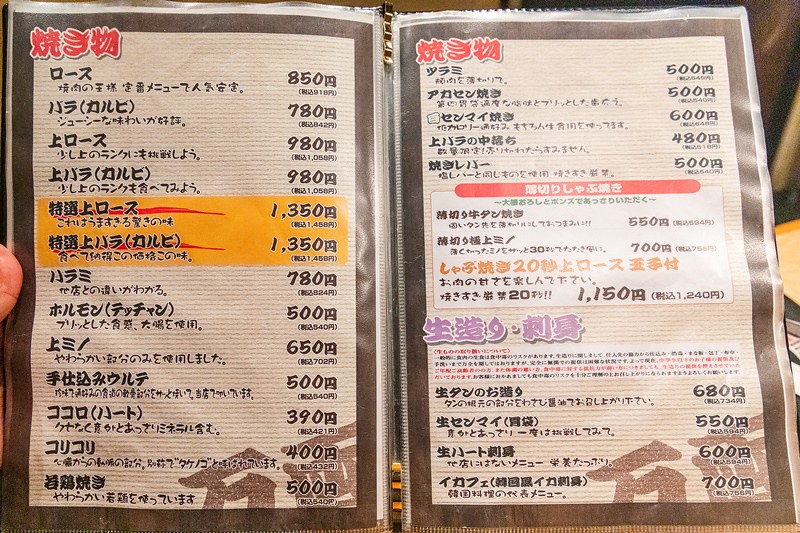 焼き物
ロース 850円
焼肉の王様 定番メニューで人気安定。 (税込918円)
バラ(カルビ) 780円
ジューシーな味わいが好評。 (税込842円)
上ロース 980円
少し上のランクにも挑戦しよう。 (税込1,058円)
上バラ(カルビ) 980円
少し上のランクも食べてみよう。 (税込1,058円)
特選上ロース 1,350円
これはうますぎる驚きの味 (税込1,458円)
特選上バラ(カルビ) 1,350円
食べて納得この価格この味。 (税込1,458円)
ハラミ 780円
他店との違いがわかる。 (税込824円)
ホルモン(テッチャン) 500円
プリッとした食感、大腸を使用。 (税込540円)
上ミノ 650円
やわらかい部分のみを使用しました。 (税込702円)
手仕込みウルテ 500円
(税込540円)
ココロ(ハート) 390円
クセなく意外とあっさりミネラル含む。 (税込421円)
コリコリ 400円
心臓からの動脈の部分。別称で"タケノコ"と呼ばれています。 (税込432円)
若鶏焼き 500円
やわらかい若鶏を使っています (税込540円)
焼き物
ツラミ 500円
頬肉を薄切りで。 (税込540円)
アカセン焼き 500円
(税込540円)
センマイ焼き 600円
(税込648円)
上バラの中落ち 480円
数量限定!売り切れわたらすみません。 (税込518円)
焼きレバー 500円
塩レバーと同じものを使用 焼きすぎ厳禁。 (税込540円)
薄切りしゃぶ焼き
〜大根おろしとポンズであっさりいただく〜
薄切り牛タン焼き 550円 (税込594円)
固いタン先を薄切りにしておつまみに!!
薄切り極上ミノ 700円 (税込756円)
薄く切ったミノをサッと30秒でたたき風に。
しゃぶ焼き20秒上ロース 玉子付
お肉の甘さを楽しんで下さい。
焼きすぎ厳禁20秒!! 1,150円 (税込1,240円)
生造り・刺身
(生ものの取り扱いについて)
生タンのお造り 680円
タンの根元の部分をわさび醤油でお召し上がり下さい。 (税込734円)
生センマイ(胃袋) 550円
意外とあっさり 一度は挑戦してみて。 (税込594円)
生ハート刺身 600円
他店にはないメニュー 栄養たっぷり。 (税込594円)
イカフェ(韓国風イカ刺身) 700円
韓国料理の代表メニュー。 (税込756円)